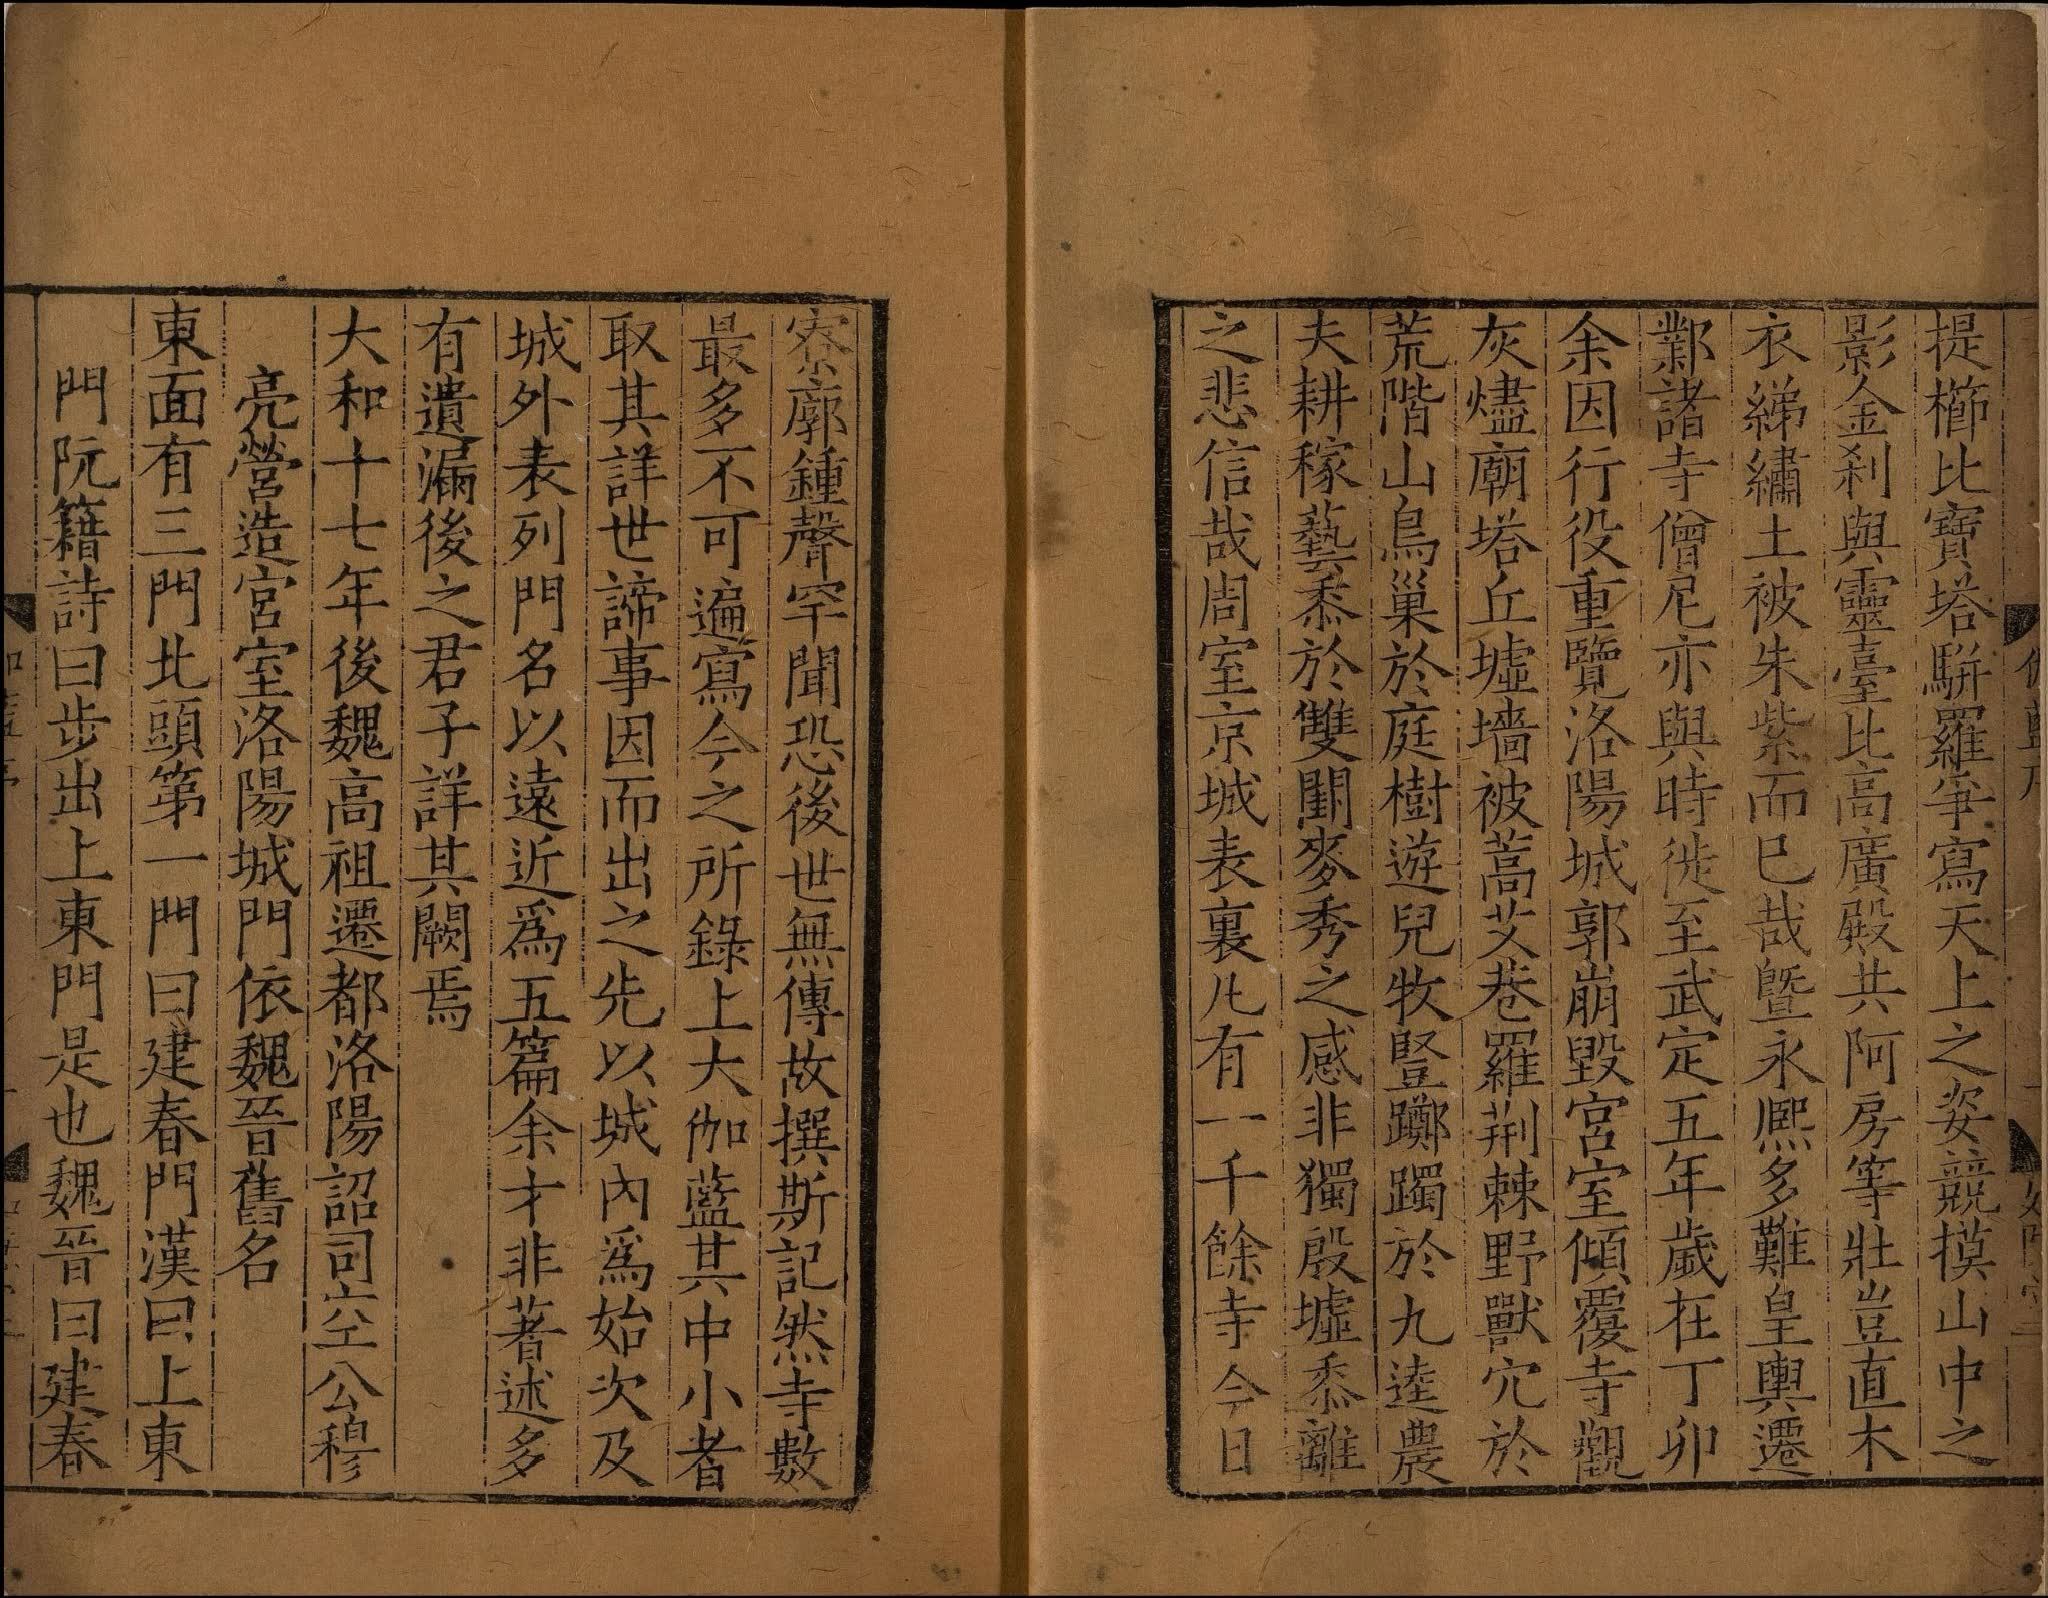 提櫛比寶塔駢羅爭寫天上之姿競摸山中之
影金刹與靈臺比高廣殿共阿房等壯豈直木
衣綈繡土被朱紫而已哉曁永熈多難皇輿遷
鄴諸寺僧尼亦與時徙至武定五年歲在丁卯
余因行役重覽洛陽城郭崩毀宮室傾覆寺觀
灰燼廟塔丘墟墻被蒿艾巷羅荆棘野獸穴於
荒階山鳥巢於庭樹遊兒牧豎躑躅於九逵農
夫耕稼藝黍於雙闕麥秀之感非獨殷墟黍離
之悲信哉周室京城表裏凡有一千餘寺今日
寮廓鍾聲罕聞恐後世無傳故撰斯記然寺數
最多不可遍寫今之所錄上大伽藍其中小者
取其詳世諦事因而出之先以城內爲始次及
城外表列門名以遠近爲五篇余才非著述多
有遺漏後之君子詳其闕焉
大和十七年後魏高祖遷都洛陽詔司空公穆
亮營造宮室洛陽城門依魏晉舊名
東面有三門北頭第一門曰建春門漢曰上東
門阮籍詩曰步出上東門是也魏晉曰建春